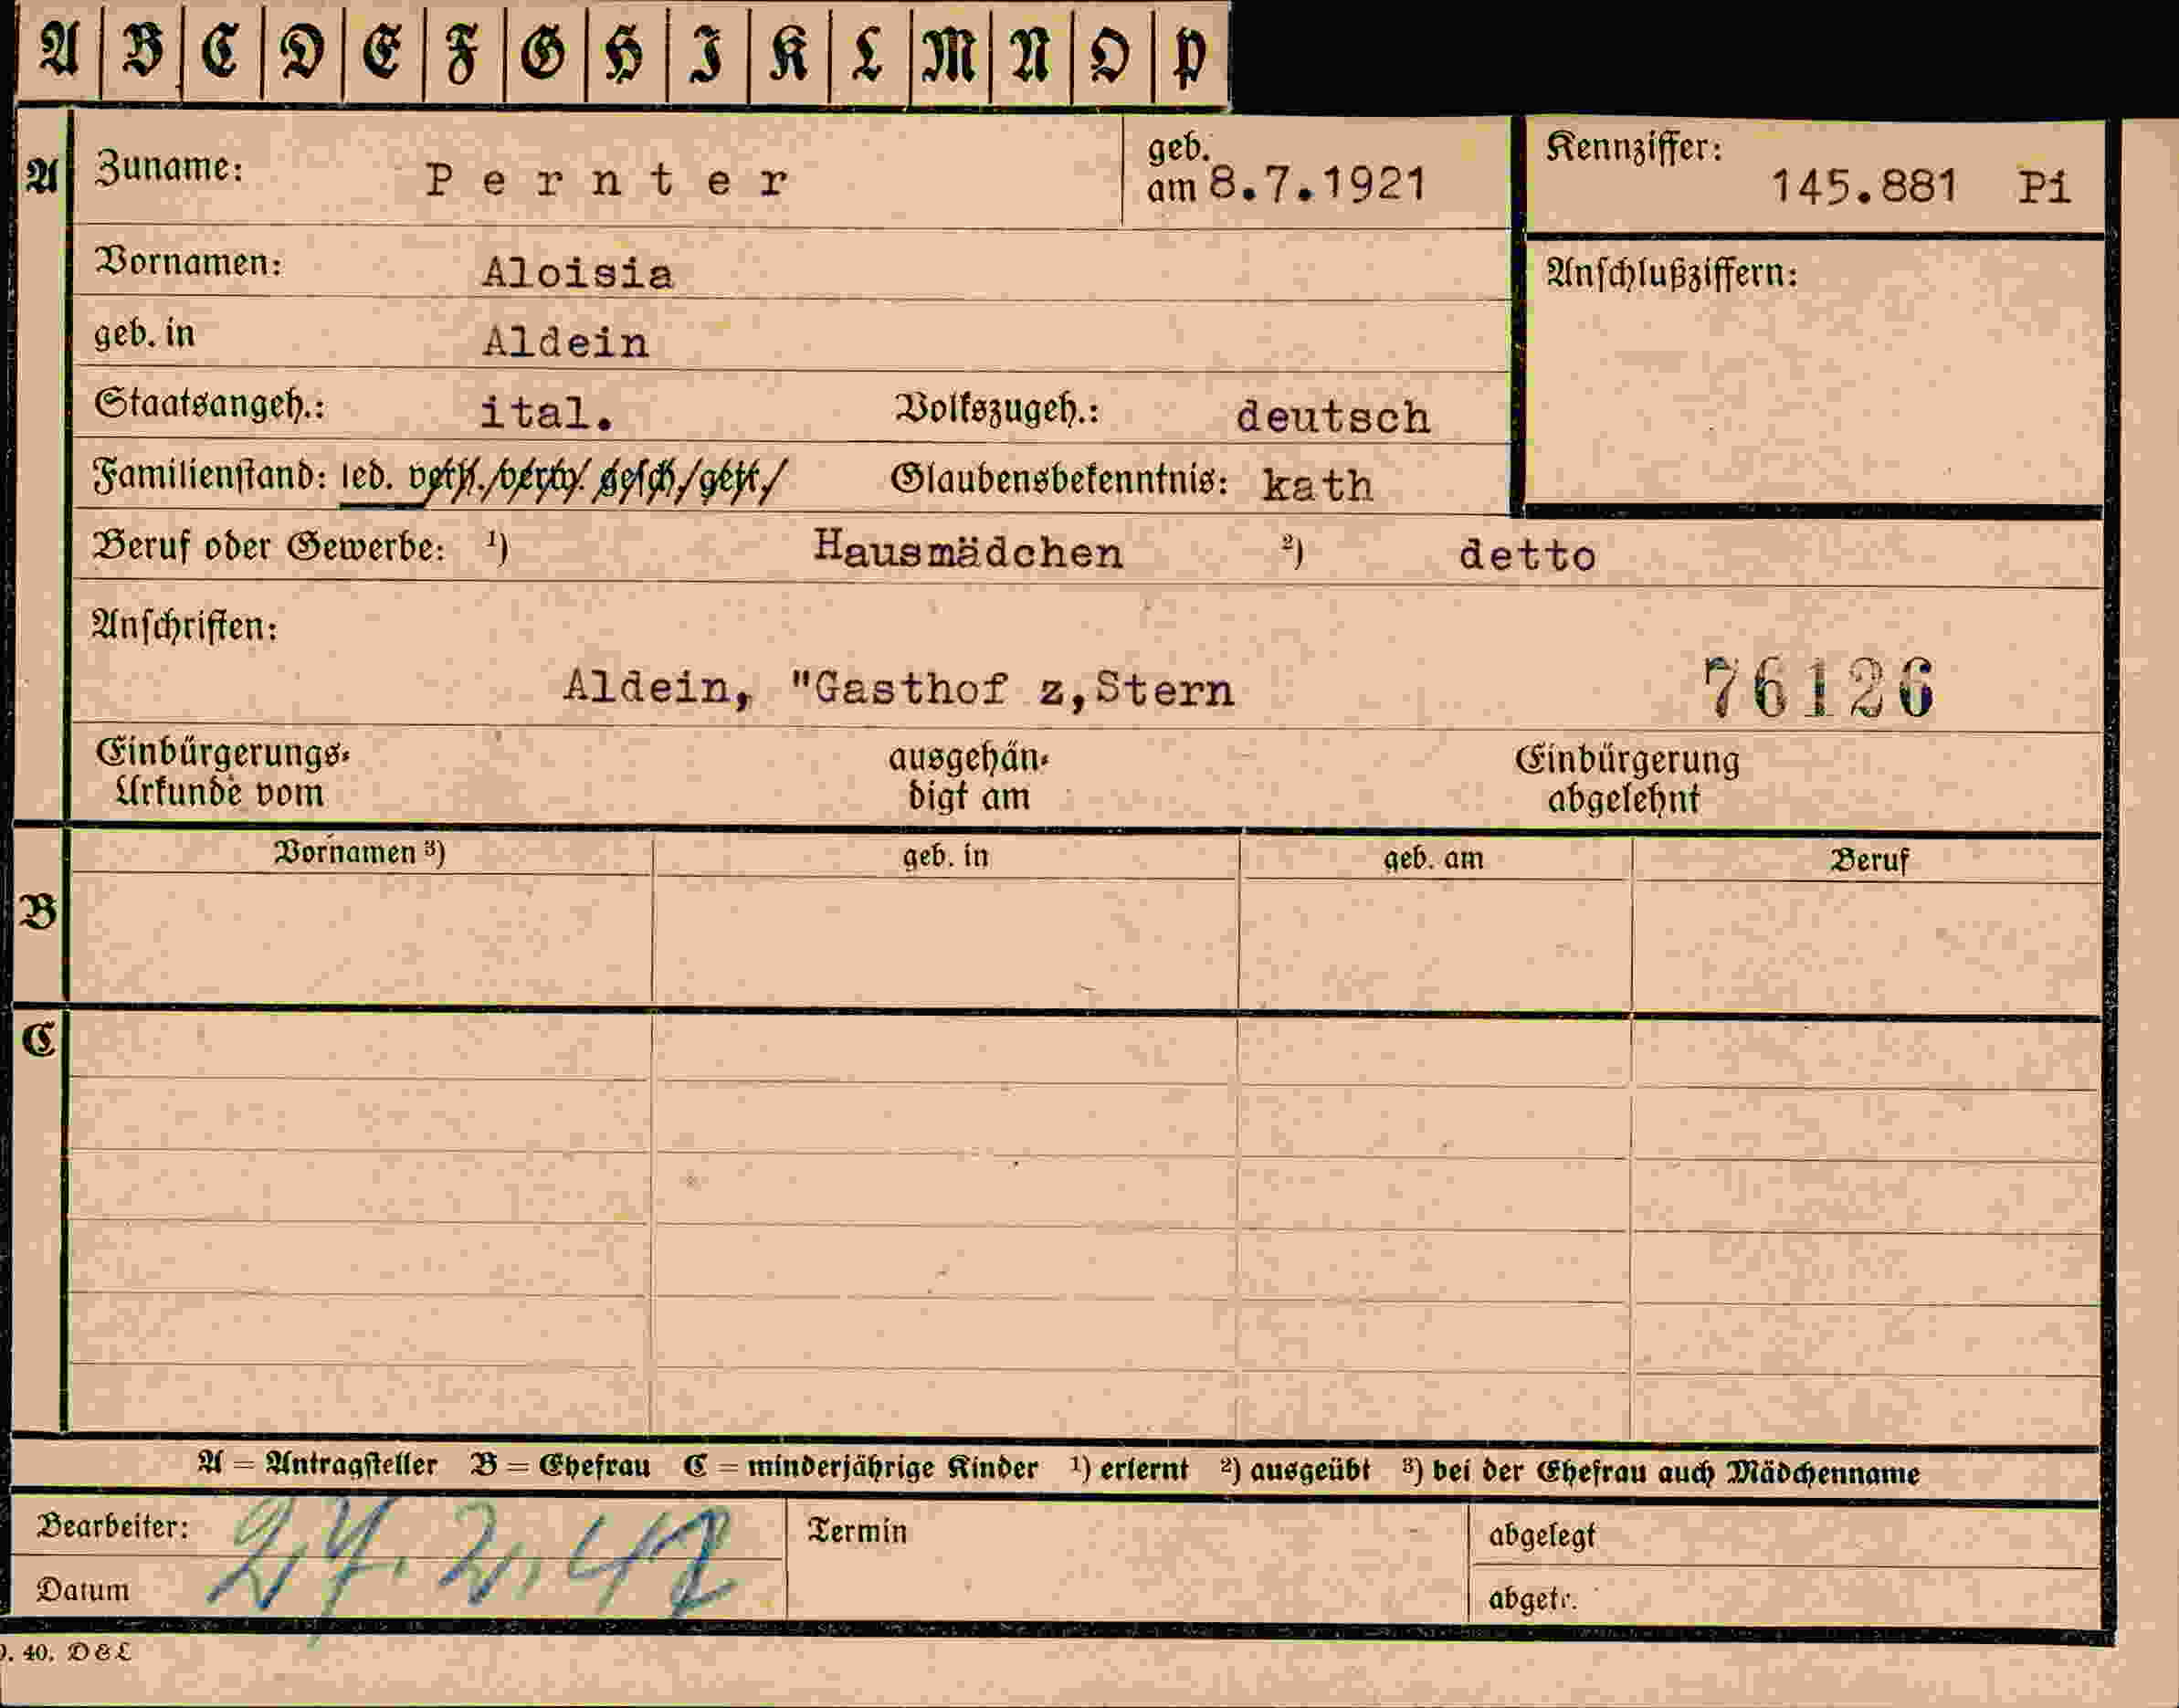 A B C D E F G H I K L M N O P
A Zuname: Pernter geb. am 8.7.1921 Kennziffer: 145.881 Pi
Vornamen: Aloisia Anschlußziffern:
geb. in Aldein
Staatsangeh.: ital. Volkszugeh.: deutsch
Familienstand: led. verh./verw./gesch./getr./ Glaubensbekenntnis: kath
Beruf oder Gewerbe: ¹) Hausmädchen ²) detto
Anschriften:
Aldein, "Gasthof z,Stern 76126
Einbürgerungs- ausgehän- Einbürgerung
Urkunde vom digt am abgelehnt
Vornamen ³) geb. in geb. am Beruf
B
C
A = Antragsteller B = Ehefrau C = minderjährige Kinder ¹) erlernt ²) ausgeübt ³) bei der Ehefrau auch Mädchenname
Bearbeiter: Termin abgelegt
Datum abgetr.
. 40. D & L